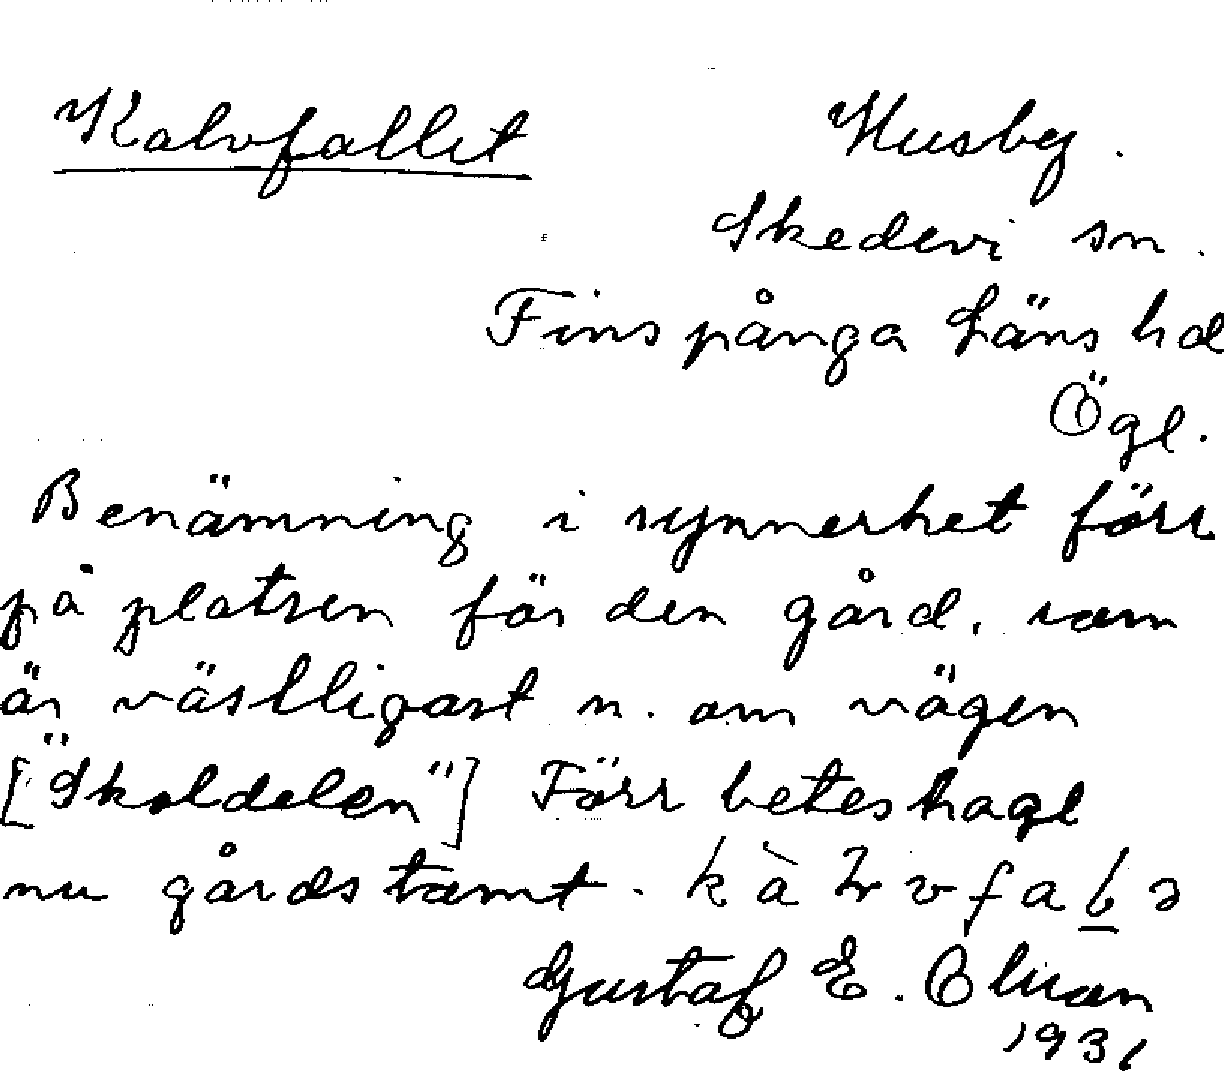 Kalvfallet Husby.
Skedevi sn.
Finspånga läns hd
Ögl.
Benämning i synnerhet förr
på platsen för den gård, som
är västligast n. om vägen
["Skoldelen"] Förr beteshage
nu gårdstomt. k à v f a
Gustaf E. Olson
1931